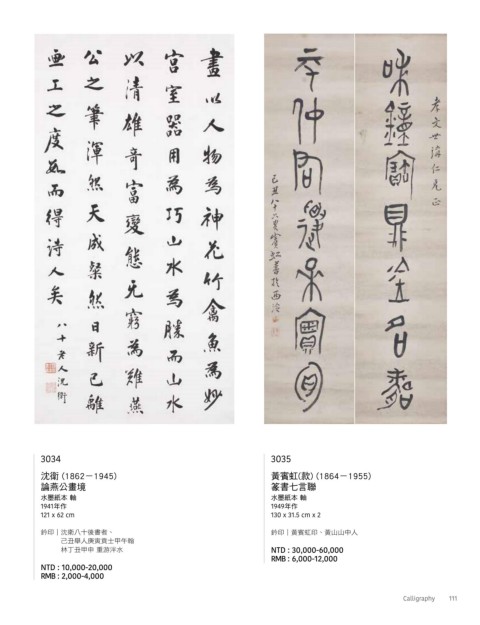 畫以人物為神花竹禽魚為妙
宮室器用為巧山水為勝而山水
以清雄奇富變態无窮為難燕
公之筆渾然天成粲然日新已離
畫工之度數而得詩人矣
八十老人沈衛
孝文世講仁兄正
鐘
鼎
金名
平仲君
寶
己丑八十六叟賓虹書於西泠
3034
沈衛 (1862－1945)
論燕公畫境
水墨紙本 軸
1941年作
121 x 62 cm
鈐印｜沈衛八十後書者。
己丑舉人庚寅貢士甲午翰
林丁丑甲申 重游泮水
NTD : 10,000-20,000
RMB : 2,000-4,000
3035
黃賓虹(款) (1864－1955)
篆書七言聯
水墨紙本 軸
1949年作
130 x 31.5 cm x 2
鈐印｜黃賓虹印。黃山山中人
NTD : 30,000-60,000
RMB : 6,000-12,000
Calligraphy 111